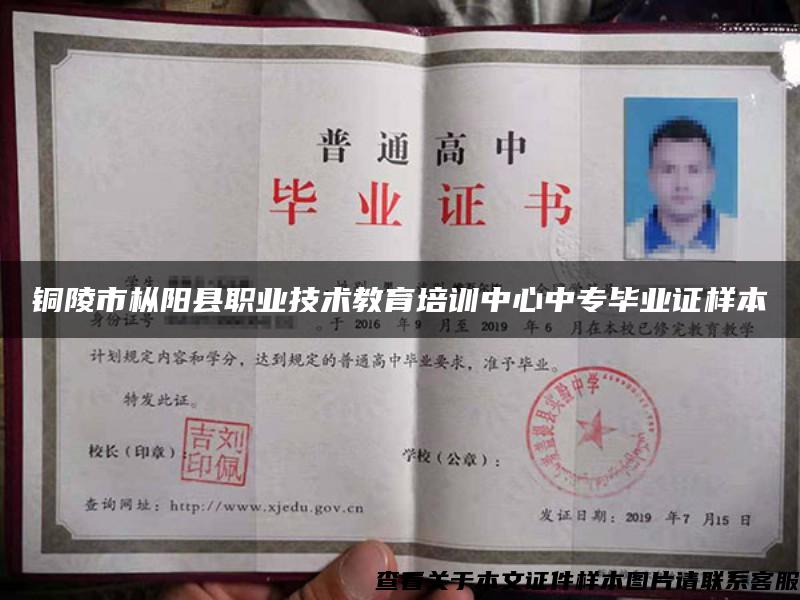 普通高中
毕业证书
铜陵市枞阳县职业技术教育培训中心中专毕业证样本
身份证号 。于 2016 年 9 月至 2019 年 6 月在本校已修完教育教学
计划规定内容和学分，达到规定的普通高中毕业要求，准予毕业。
特发此证。
校长（印章）：
吉刘
印佩
学校（公章）：
盖提县实验中学
查询网址：http://www.xjedu.gov.cn
发证日期：2019 年 7 月 15 日
查看关于本文证件样本图片请联系客服